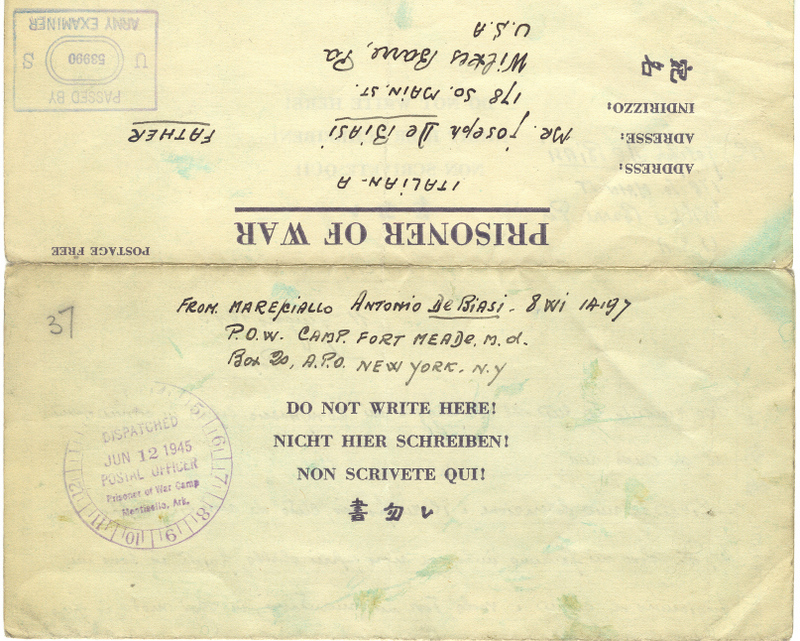 PASSED BY
U 53990 S
ARMY EXAMINER
POSTAGE FREE
PRISONER OF WAR
ITALIAN - A
ADDRESS:
ADRESSE:
INDIRIZZO:
Mr. Joseph De Biasi
FATHER
178 SO. MAIN. ST.
Wilkes Barre, Pa
U.S.A
37
FROM. MARESCIALLO ANTONIO De BIASI - 8 WI IA-197
P.O.W. CAMP. FORT MEADE, M.d.
Box 20, A.P.O. NEW YORK. N.Y
DO NOT WRITE HERE!
NICHT HIER SCHREIBEN!
NON SCRIVETE QUI!
書勿レ
DISPATCHED
JUN 12 1945
POSTAL OFFICER
Prisoner of War Camp
Monticello, Ark.